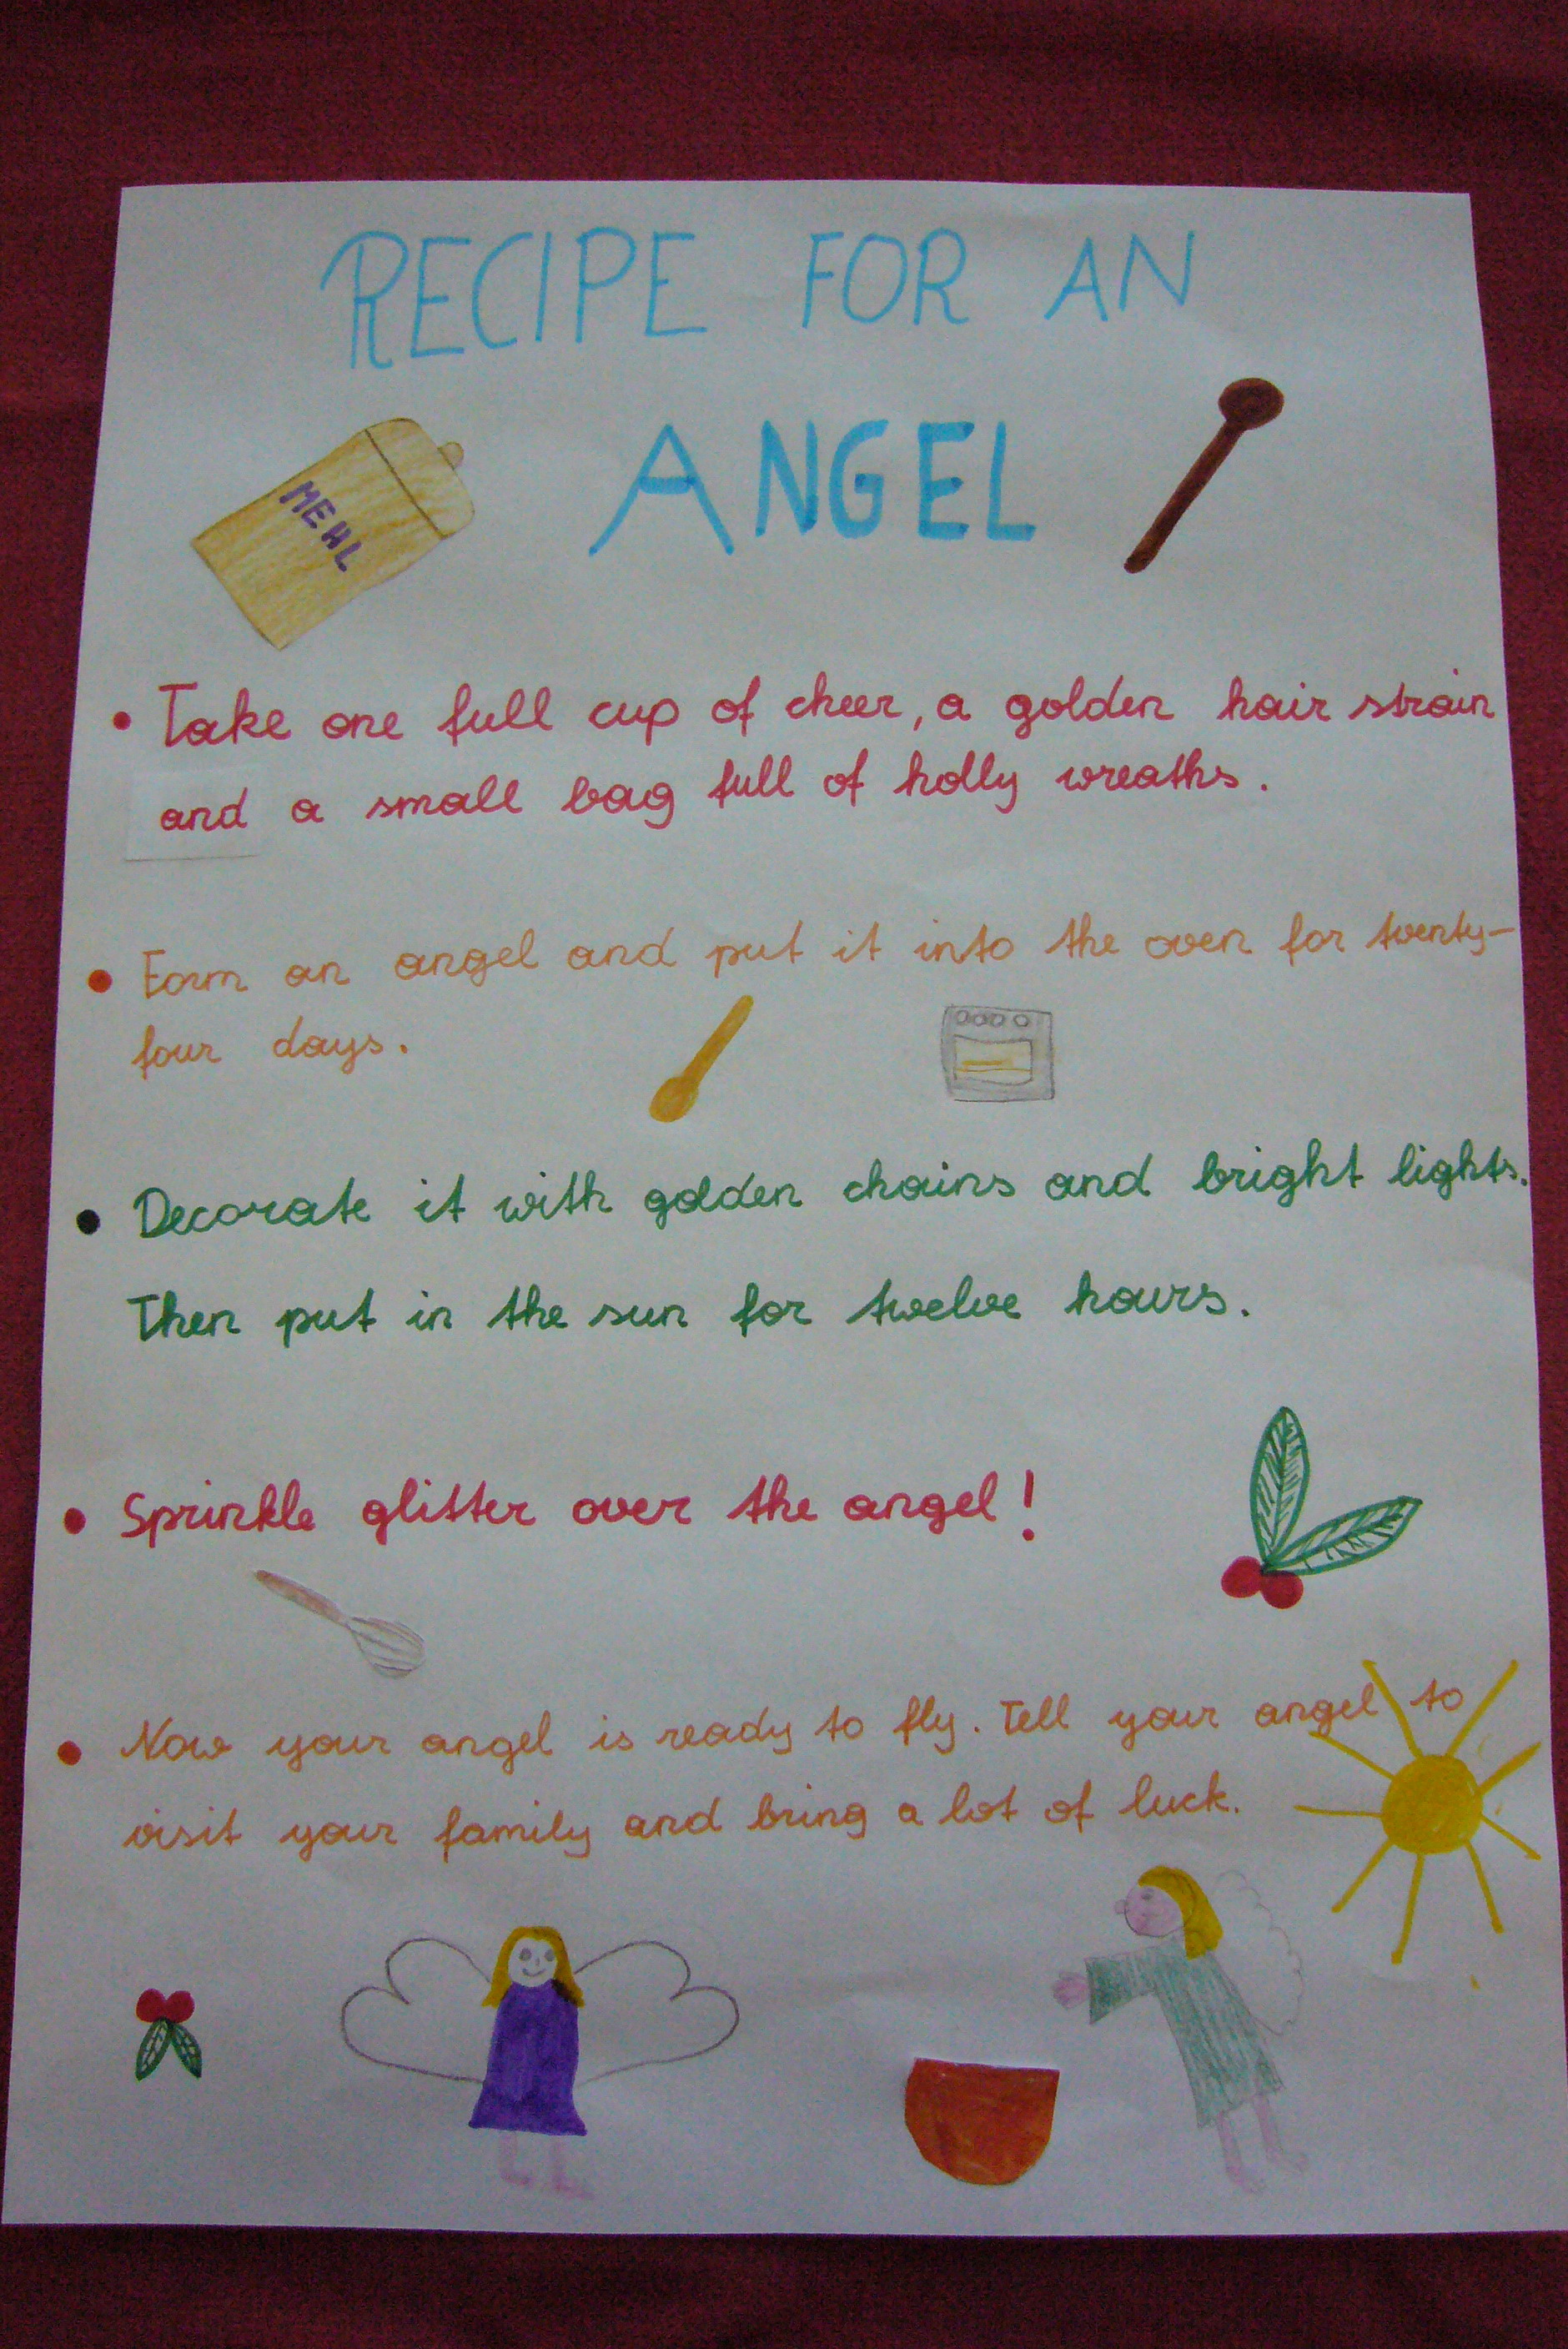 RECIPE FOR AN
ANGEL
MEHL
• Take one full cup of cheer, a golden hair strain
and a small bag full of holly wreaths.
• Form an angel and put it into the oven for twenty-
four days.
• Decorate it with golden chains and bright lights.
Then put in the sun for twelve hours.
• Sprinkle glitter over the angel!
• Now your angel is ready to fly. Tell your angel to
visit your family and bring a lot of luck.